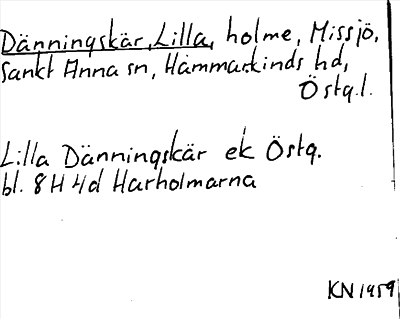 Dänningskär, Lilla, holme, Missjö,
Sankt Anna sn, Hammarkinds hd,
Östg.l.
Lilla Dänningskär ek Östg.
bl. 8H 4d Harholmarna
KN 1959